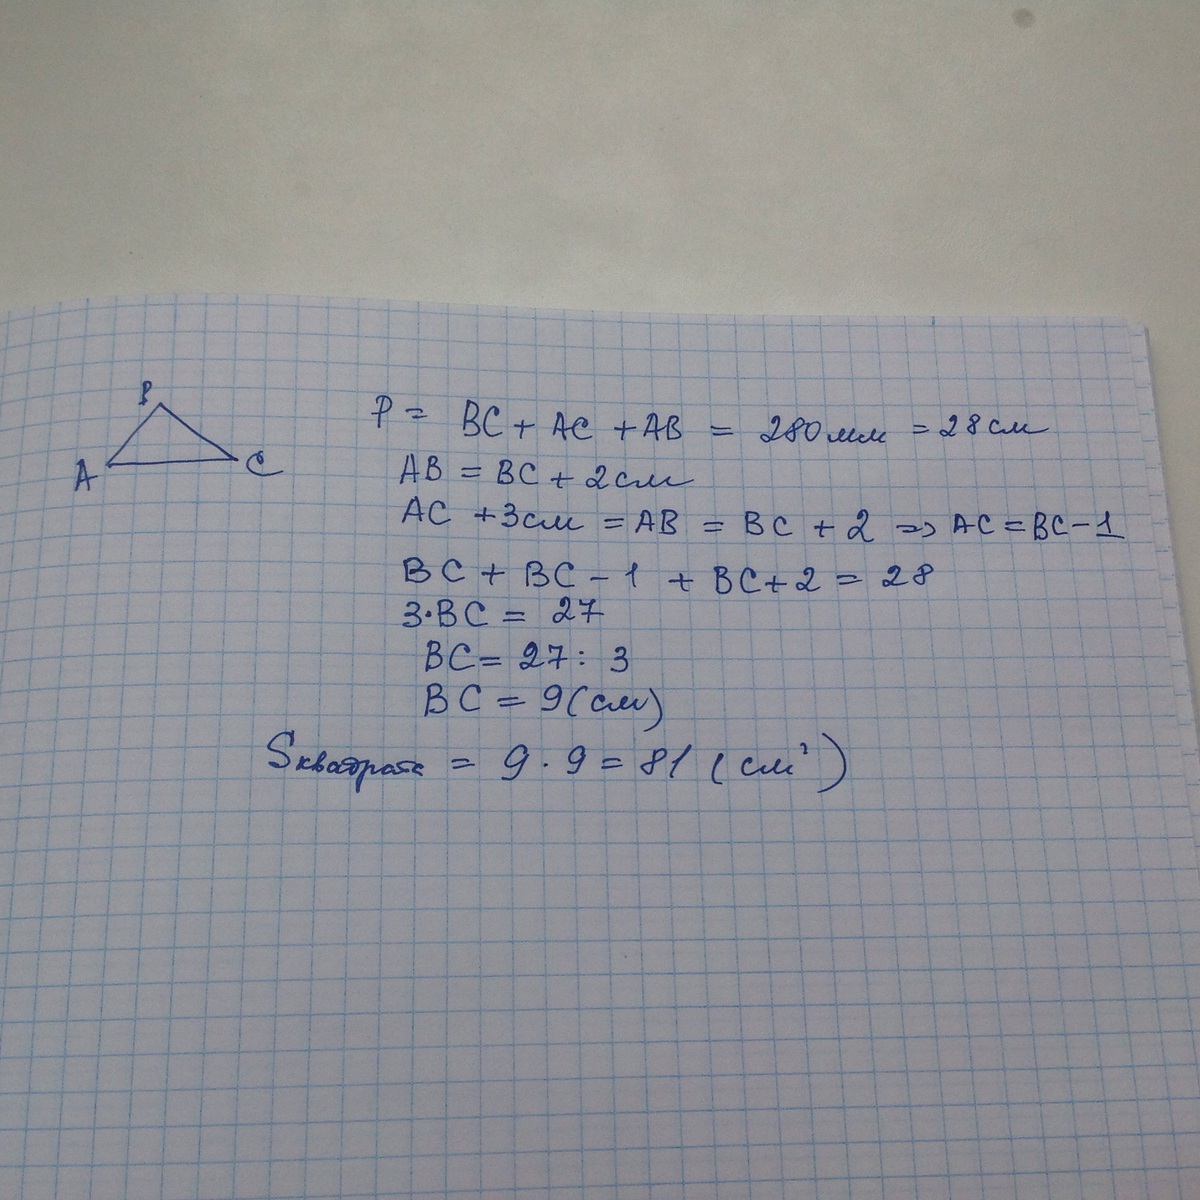 B
A
C
P = BC + AC + AB = 280мм = 28см
AB = BC + 2см
AC + 3см = AB = BC + 2 => AC = BC - 1
BC + BC - 1 + BC + 2 = 28
3·BC = 27
BC = 27 : 3
BC = 9(см)
Sквадрата = 9 · 9 = 81 (см²)